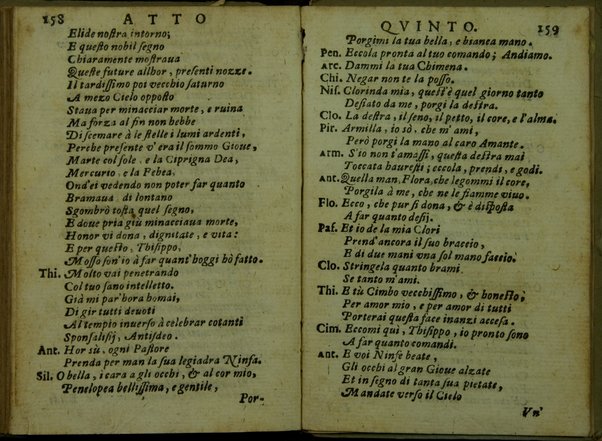 158 ATTO
Elide nostra intorno;
E questo nobil segno
Chiaramente mostraua
Queste future allhor, presenti nozze.
Il tardissimo poi vecchio saturno
A mezo Cielo opposto
Staua per minacciar morte, e ruina
Ma forza al fin non hebbe
Di scemare à le stelle i lumi ardenti,
Perche presente v'era il sommo Gioue,
Marte col sole, e la Ciprigna Dea,
Mercurio, e la Febea.
Ond'ei vedendo non poter far quanto
Bramaua, di lontano
Sgombrò tosto quel segno,
E doue pria giù minacciaua morte,
Honor vi dona, dignitate, e vita:
E per questo, Thisippo,
Mosso son'io à far quant'hoggi hò fatto.
Thi. Molto vai penetrando
Col tuo sano intelletto.
Già mi par'hora homai,
Di gir tutti deuoti
Al tempio inuerso à celebrar cotanti
Sponsalisij, Antisdeo.
Ant. Hor sù, ogni Pastore
Prenda per man la sua legiadra Ninfa.
Sil. O bella, i cara a gli occhi, & al cor mio,
Penelopea bellissima, e gentile,
Por-
QVINTO. 159
Porgimi la tua bella, e bianca mano.
Pen. Eccola pronta al tuo comando; Andiamo.
Arc. Dammi la tua Chimena.
Chi. Negar non te la posso.
Nis. Clorinda mia, quest'è quel giorno tanto
Desiato da me, porgi la destra.
Clo. La destra, il seno, il petto, il core, e l'alma.
Pir. Armilla, io sò, che m'ami,
Però porgi la mano al caro Amante.
Arm. S'io non t'amassi, questa destra mai
Toccata hauresti; eccola, prendi, e godi.
Ant. Quella man, Flora, che legommi il core,
Porgila à me, che ne le fiamme viuo.
Flo. Ecco, che pur si dona, & è disposta
A far quanto desij.
Paf. Et io de la mia Clori
Prend'ancora il suo braccio,
E di due mani vna sol mano faccio.
Clo. Stringela quanto brami
Se tanto m'ami.
Thi. E tù Cimbo vecchissimo, & honesto,
Per amor mio, e per amor di tutti
Porterai questa face inanzi accesa.
Cim. Eccomi quì, Thisippo, io pronto sono
A far quanto comandi.
Ant. E voi Ninfe beate,
Gli occhi al gran Gioue alzate
Et in segno di tanta sua pietate,
Mandate verso il Cielo
Vn'